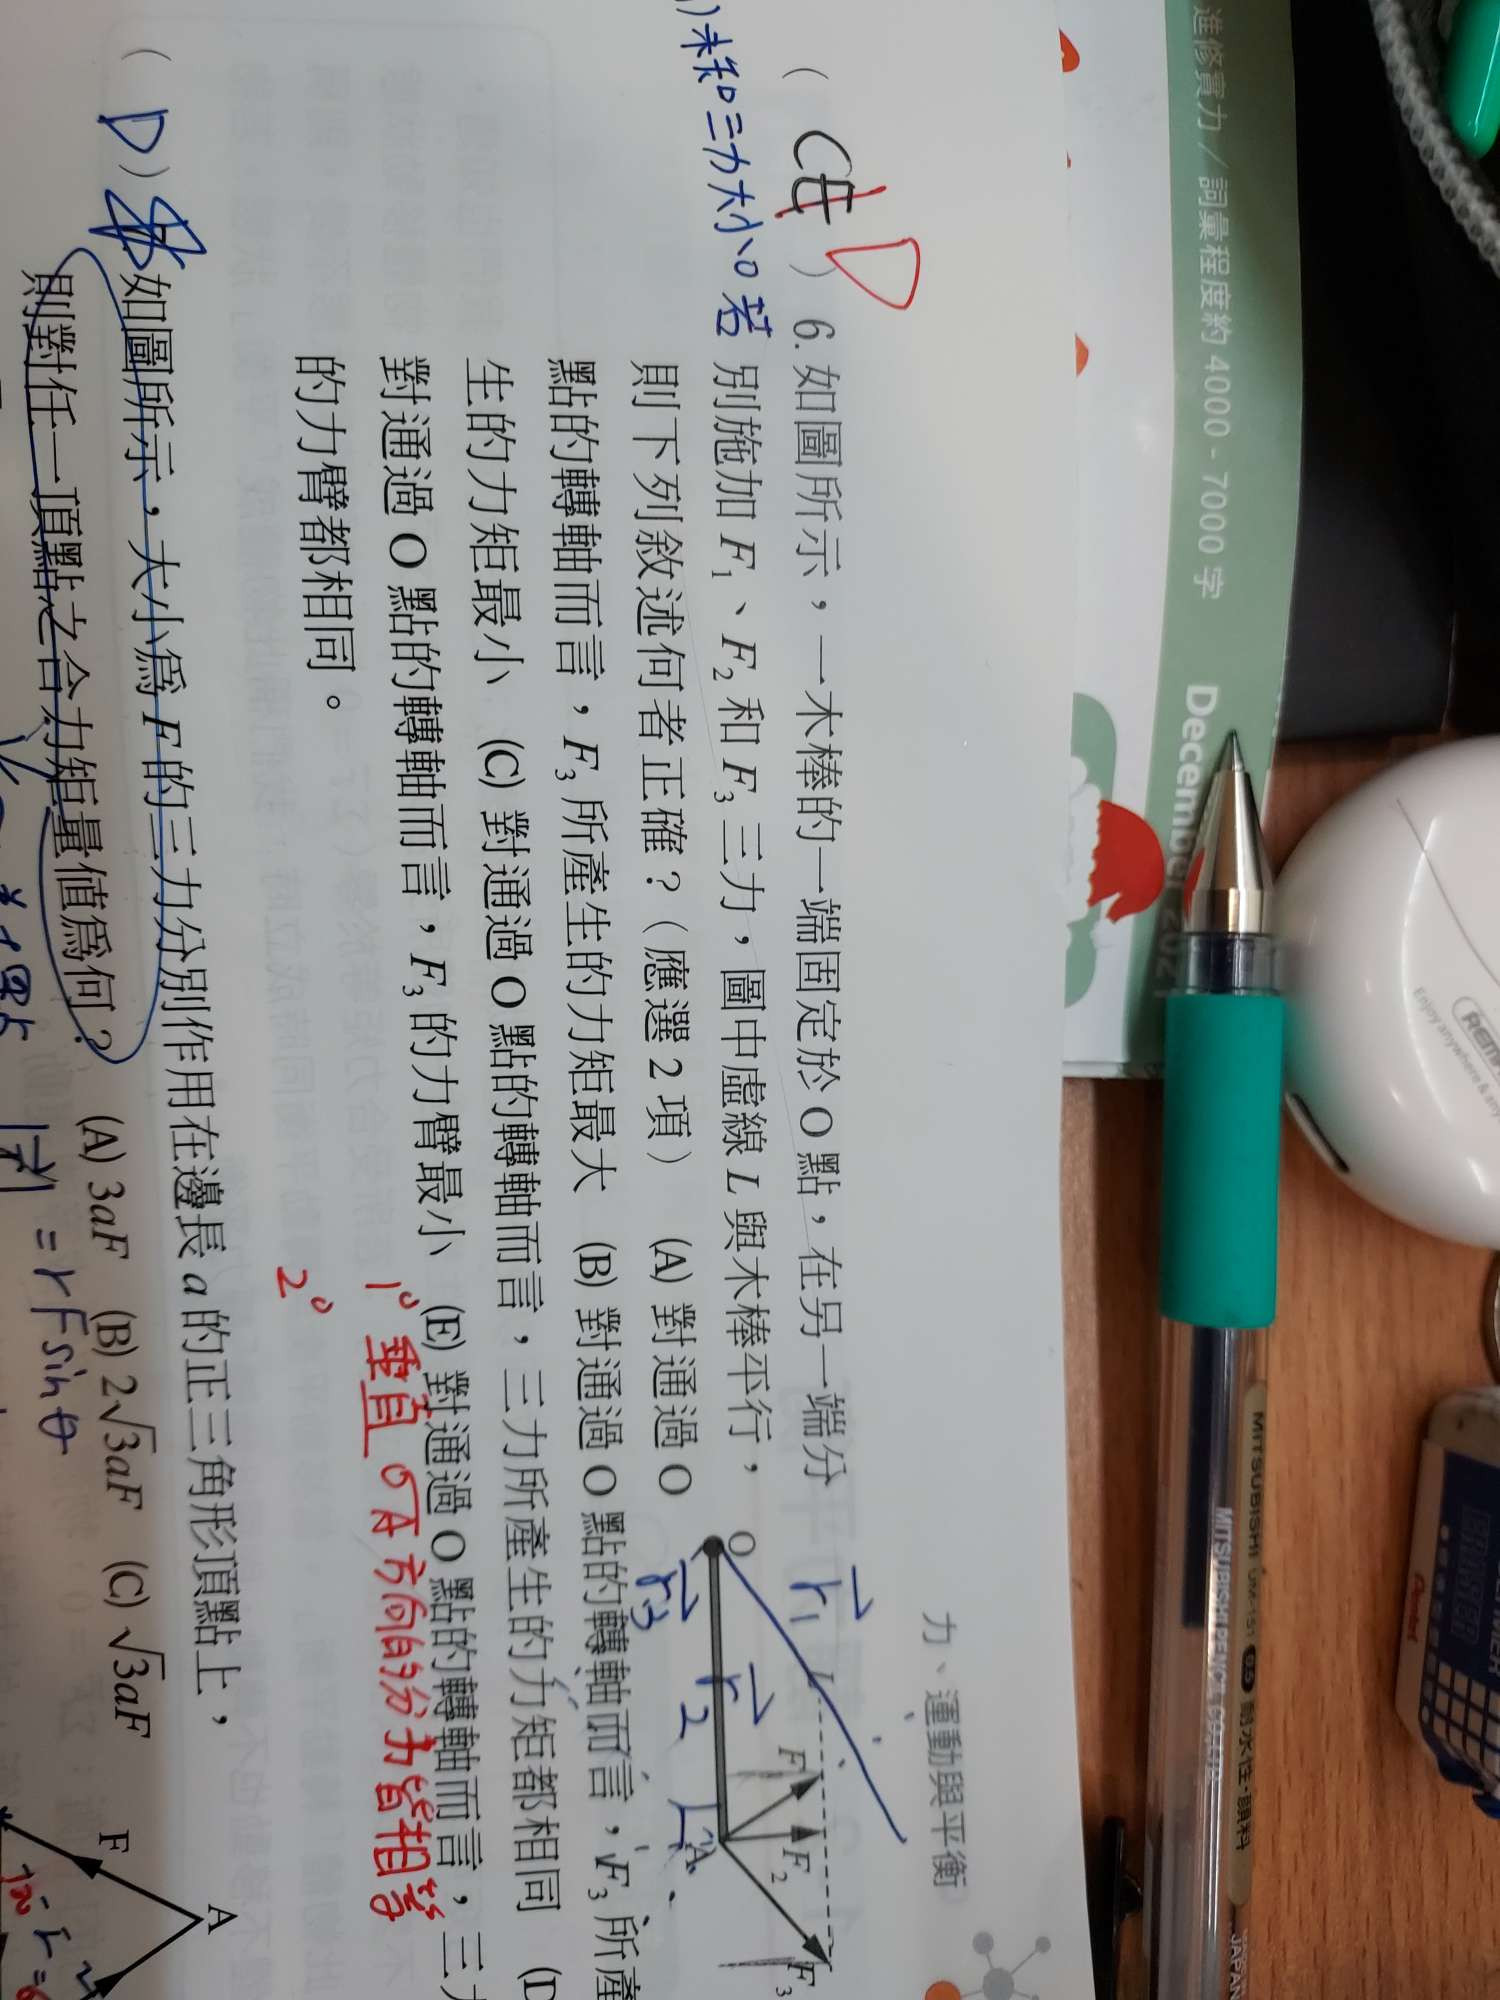 進修實力／詞彙程度約 4000 - 7000 字
December 202
力、運動與平衡
( CE D ) 6. 如圖所示，一木棒的一端固定於 O 點，在另一端分
別施加 F₁、F₂ 和 F₃ 三力，圖中虛線 L 與木棒平行，
則下列敘述何者正確？（應選 2 項） (A) 對通過 O
點的轉軸而言，F₃ 所產生的力矩最大 (B) 對通過 O 點的轉軸而言，F₃ 所產
生的力矩最小 (C) 對通過 O 點的轉軸而言，三力所產生的力矩都相同 (D
對通過 O 點的轉軸而言，F₃ 的力臂最小 (E) 對通過 O 點的轉軸而言，三力
的力臂都相同。
未知三力大小。若
O
L
F₂
F₃
A
r₁
r₂
r₃
1° 垂直 OA 方向的分力皆相等
2°
( D ) 如圖所示，大小為 F 的三力分別作用在邊長 a 的正三角形頂點上，
則對任一頂點之合力矩量值為何？ (A) 3aF (B) 2√3aF (C) √3aF
= r F sin θ
F
A
REM
Enjoy anywhere & any
MITSUBISHI UM-151 0.5 耐水性・顔料
MITSUBISHI PENCIL CO., LTD.
JAPAN
Pentel